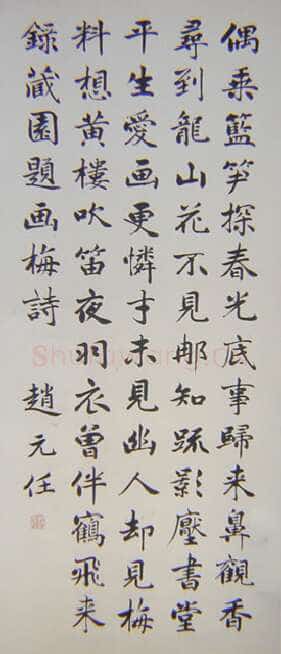 偶乘籃笋探春光底事歸来鼻觀香
尋到龍山花不見那知疏影壓書堂
平生愛画更憐才未見幽人却見梅
料想黃樓吹笛夜羽衣曾伴鶴飛来
錄藏園題画梅詩 趙元任